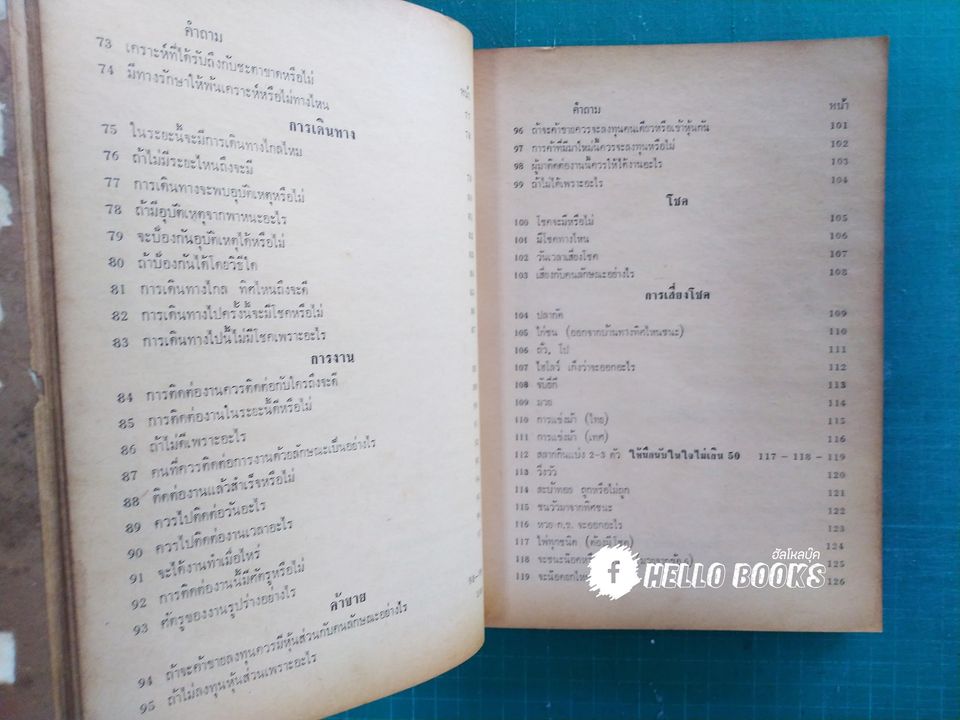 คำถาม
หน้า
73 เคราะห์ที่ได้รับถึงกับชะตาขาดหรือไม่ 71
74 มีทางรักษาให้พ้นเคราะห์หรือไม่ทางไหน 74
การเดินทาง
75 ในระยะนี้จะมีการเดินทางไกลไหม
76 ถ้าไม่มีระยะไหนถึงจะมี
77 การเดินทางจะพบอุบัติเหตุหรือไม่
78 ถ้ามีอุบัติเหตุจากพาหนะอะไร
79 จะป้องกันอุบัติเหตุได้หรือไม่
80 ถ้าป้องกันได้โดยวิธีใด
81 การเดินทางไกล ทิศไหนถึงจะดี
82 การเดินทางไปครั้งนี้จะมีโชคหรือไม่
83 การเดินทางไปนี้ไม่มีโชคเพราะอะไร
การงาน
84 การติดต่องานควรติดต่อกับใครถึงจะดี
85 การติดต่องานในระยะนี้ดีหรือไม่
86 ถ้าไม่ดีเพราะอะไร
87 คนที่ควรติดต่อการงานด้วยลักษณะเป็นอย่างไร
88 ติดต่องานแล้วสำเร็จหรือไม่
89 ควรไปติดต่อวันอะไร
90 ควรไปติดต่องานเวลาอะไร
91 จะได้งานทำเมื่อไหร่
92 การติดต่องานนี้มีศัตรูหรือไม่
93 ศัตรูของงานรูปร่างอย่างไร
ค้าขาย
94 ถ้าจะค้าขายลงทุนควรมีหุ้นส่วนกับคนลักษณะอย่างไร
95 ถ้าไม่ลงทุนหุ้นส่วนเพราะอะไร
คำถาม หน้า
96 ถ้าจะค้าขายควรจะลงทุนคนเดียวหรือเข้าหุ้นกัน 101
97 การค้าที่มีมาใหม่นี้ควรจะลงทุนหรือไม่ 102
98 ผู้มาติดต่องานนี้ควรให้ได้งานอะไร 103
99 ถ้าไม่ได้เพราะอะไร 104
โชค
100 โชคจะมีหรือไม่ 105
101 มีโชคทางไหน 106
102 วันเวลาเสี่ยงโชค 107
103 เสี่ยงกับคนลักษณะอย่างไร 108
การเสี่ยงโชค
104 ปลากัด 109
105 ไก่ชน (ออกจากบ้านทางทิศไหนชนะ) 110
106 ถั่ว, โป 111
107 ไฮโลว์ เก็งว่าจะออกอะไร 112
108 จับยี่กี 113
109 มวย 114
110 การแข่งม้า (ไทย) 115
111 การแข่งม้า (เทศ) 116
112 สลากกินแบ่ง 2–3 ตัว ให้นึกนับในใจไม่เกิน 50 117 – 118 – 119
113 วิ่งวัว 120
114 สะบ้าทอย ถูกหรือไม่ถูก 121
115 ชนวัวมาจากทิศชนะ 122
116 หวย ก.ข. จะออกอะไร 123
117 ไพ่ทุกชนิด (ต้องมีโชค) 124
118 จะชนะน๊อคหรือไม่ 125
119 จะน๊อคยกไหน 126
ฮัลโหลบุ๊ค
f HELLO BOOKS